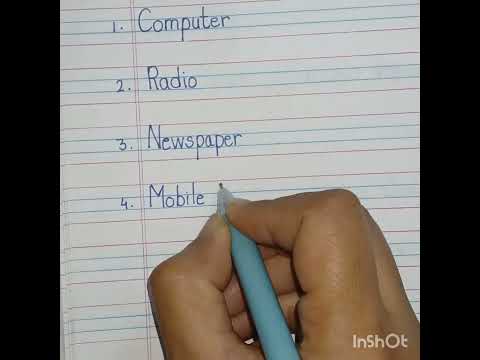 1. Computer
2. Radio
3. Newspaper
4. Mobile
InShOt